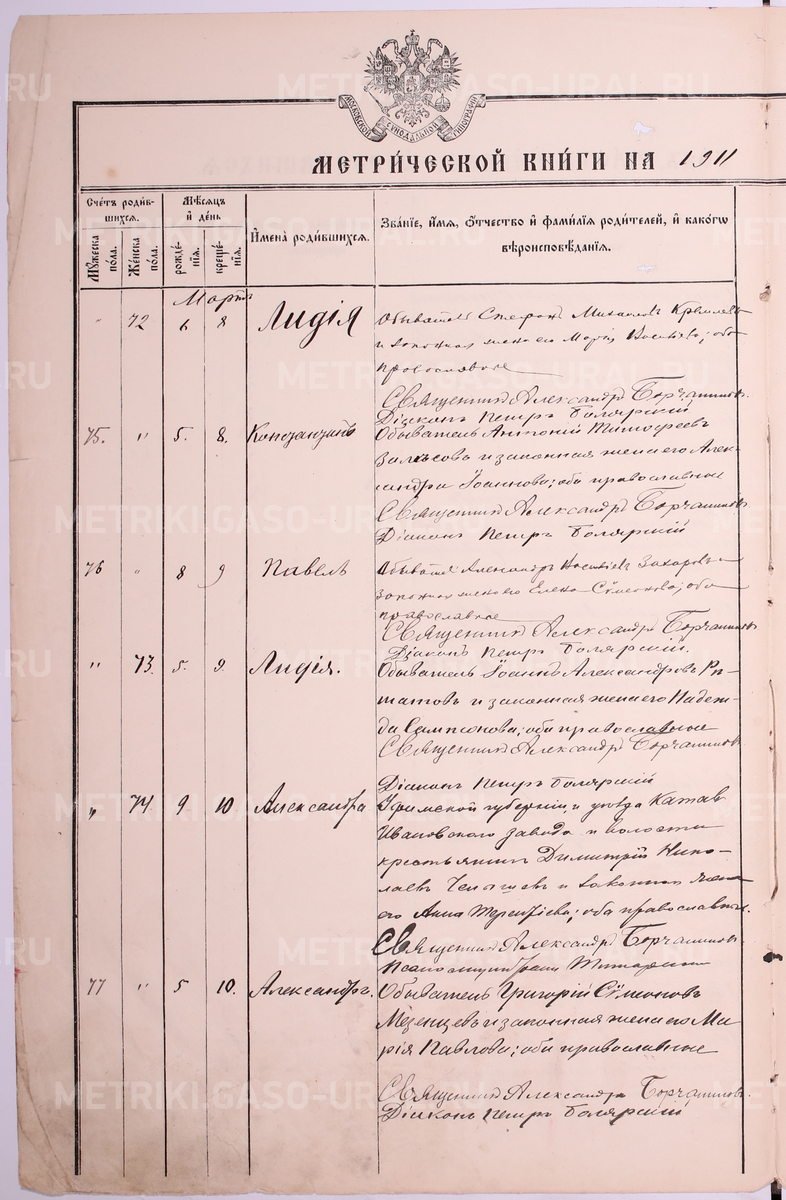 МОСКОВСКОЙ СѴНОДАЛЬНОЙ ТИПОГРАФІИ
МЕТРИ́ЧЕСКОЙ КНИ́ГИ НА 1911
Сче́тъ роди́в-
шихся.
Мꙋ́жеска по́ла.
Же́нска по́ла.
Мѣ́сяцъ
и҆ де́нь
рожде́-
нїѧ.
креще́-
нїѧ.
И҆мена̀ роди́вшихся.
Зва́нїе, и҆́мя, ѻ҆́тчество и҆ фами́лїѧ роди́телей, и҆ како́гѡ
вѣроисповѣ́данїѧ.
Мартъ
" 72 6 8 Лидія
Обыватель Стефан Михаилов
и законная жена его Васильева; оба
православные
Священникъ Александръ
Діаконъ Петръ Боярскій
75. " 5. 8. Константинъ
Обыватель Антоній Тимофеевъ
и законная жена его Алек-
сандра Іоаннова; оба православные
Священникъ Александръ
Діаконъ Петръ Боярскій
76 " 8 9 Павелъ
Обыватель Александръ Захаровъ и
законная жена его Елена Сѵмеонова; оба
православные
Священникъ Александръ
Діаконъ Петръ Боярскій.
" 73. 5. 9. Лидія.
Обыватель Іоаннъ Александровъ
и законная жена его Надеж-
да Сампсонова; оба православные
Священникъ Александръ
Діаконъ Петръ Боярскій
" 74 9 10 Александра
Уфимской губерніи и уѣзда Катав
Ивановского завода и волости
крестьянинъ Димитрій Нико-
лаевъ и законная жена
его Анна Терентіева; оба православные.
Священникъ Александръ
77 " 5 10. Александръ.
Обыватель Григорій Сѵмеоновъ
Мезенцевъ и законная жена его Ма-
рія Павлова; оба православные
Священникъ Александръ
Діаконъ Петръ Боярскій
METRIKI.GASO-URAL.RU